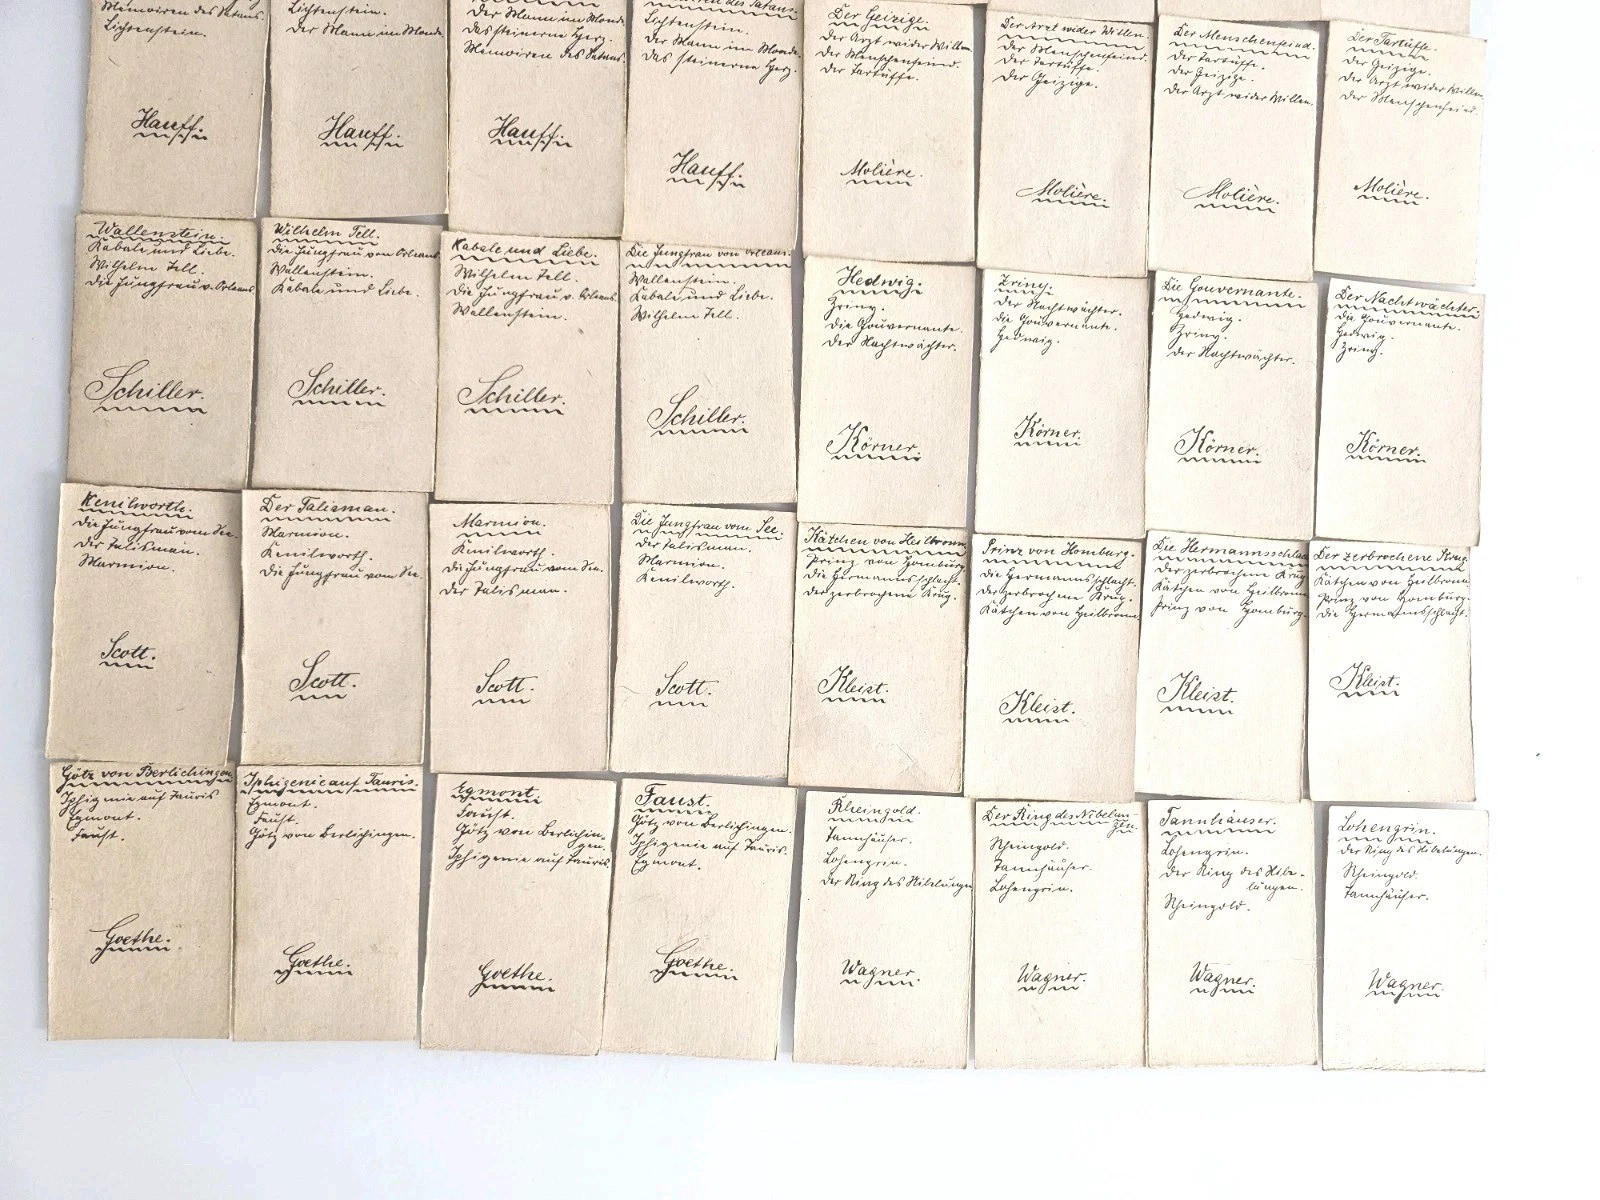 Memoiren des Satans.
Lichtenstein.
Hauff.
Lichtenstein.
Der Mann im Monde
Hauff.
Der Mann im Monde
Das steinerne Herz.
Memoiren des Satans.
Hauff.
Lichtenstein.
Der Mann im Monde.
Das steinerne Herz.
Hauff.
Der Geizige.
Der Arzt wider Willen.
Der Menschenfeind.
Der Tartüffe.
Molière.
Der Arzt wider Willen.
Der Menschenfeind.
Der Tartüffe.
Der Geizige.
Molière.
Der Menschenfeind.
Der Tartüffe.
Der Geizige.
Der Arzt wider Willen.
Molière.
Der Tartüffe.
Der Geizige.
Der Arzt wider Willen.
Der Menschenfeind.
Molière.
Wallenstein.
Kabale und Liebe.
Wilhelm Tell.
Die Jungfrau v. Orleans.
Schiller.
Wilhelm Tell.
Die Jungfrau von Orleans.
Wallenstein.
Kabale und Liebe.
Schiller.
Kabale und Liebe.
Wilhelm Tell.
Die Jungfrau v. Orleans.
Wallenstein.
Schiller.
Die Jungfrau von Orleans.
Wallenstein.
Kabale und Liebe.
Wilhelm Tell.
Schiller.
Hedwig.
Zriny.
Die Gouvernante.
Der Nachtwächter.
Körner.
Zriny.
Der Nachtwächter.
Die Gouvernante.
Hedwig.
Körner.
Die Gouvernante.
Hedwig.
Zriny.
Der Nachtwächter.
Körner.
Der Nachtwächter.
Die Gouvernante.
Hedwig.
Zriny.
Körner.
Kenilworth.
Die Jungfrau vom See.
Der Talisman.
Marmion.
Scott.
Der Talisman.
Marmion.
Kenilworth.
Die Jungfrau vom See.
Scott.
Marmion.
Kenilworth.
Die Jungfrau vom See.
Der Talisman.
Scott.
Die Jungfrau vom See.
Der Talisman.
Marmion.
Kenilworth.
Scott.
Kätchen von Heilbronn
Prinz von Homburg.
Die Hermannsschlacht.
Der zerbrochene Krug.
Kleist.
Prinz von Homburg.
Die Hermannsschlacht.
Der zerbrochene Krug.
Kätchen von Heilbronn.
Kleist.
Die Hermannsschlach
Der zerbrochene Krug
Kätchen von Heilbronn
Prinz von Homburg.
Kleist.
Der zerbrochene Krug.
Kätchen von Heilbronn
Prinz von Homburg.
Die Hermannsschlacht.
Kleist.
Götz von Berlichingen
Iphigenie auf Tauris
Egmont.
Faust.
Goethe.
Iphigenie auf Tauris.
Egmont.
Faust.
Götz von Berlichingen.
Goethe.
Egmont.
Faust.
Götz von Berlichin-
gen.
Iphigenie auf Tauris.
Goethe.
Faust.
Götz von Berlichingen.
Iphigenie auf Tauris.
Egmont.
Goethe.
Rheingold.
Tannhäuser.
Lohengrin.
Der Ring des Nibelungen
Wagner.
Der Ring des Nibelun-
gen.
Rheingold.
Tannhäuser.
Lohengrin.
Wagner.
Tannhäuser.
Lohengrin.
Der Ring des Nibe-
lungen.
Rheingold.
Wagner.
Lohengrin.
Der Ring des Nibelungen.
Rheingold.
Tannhäuser.
Wagner.